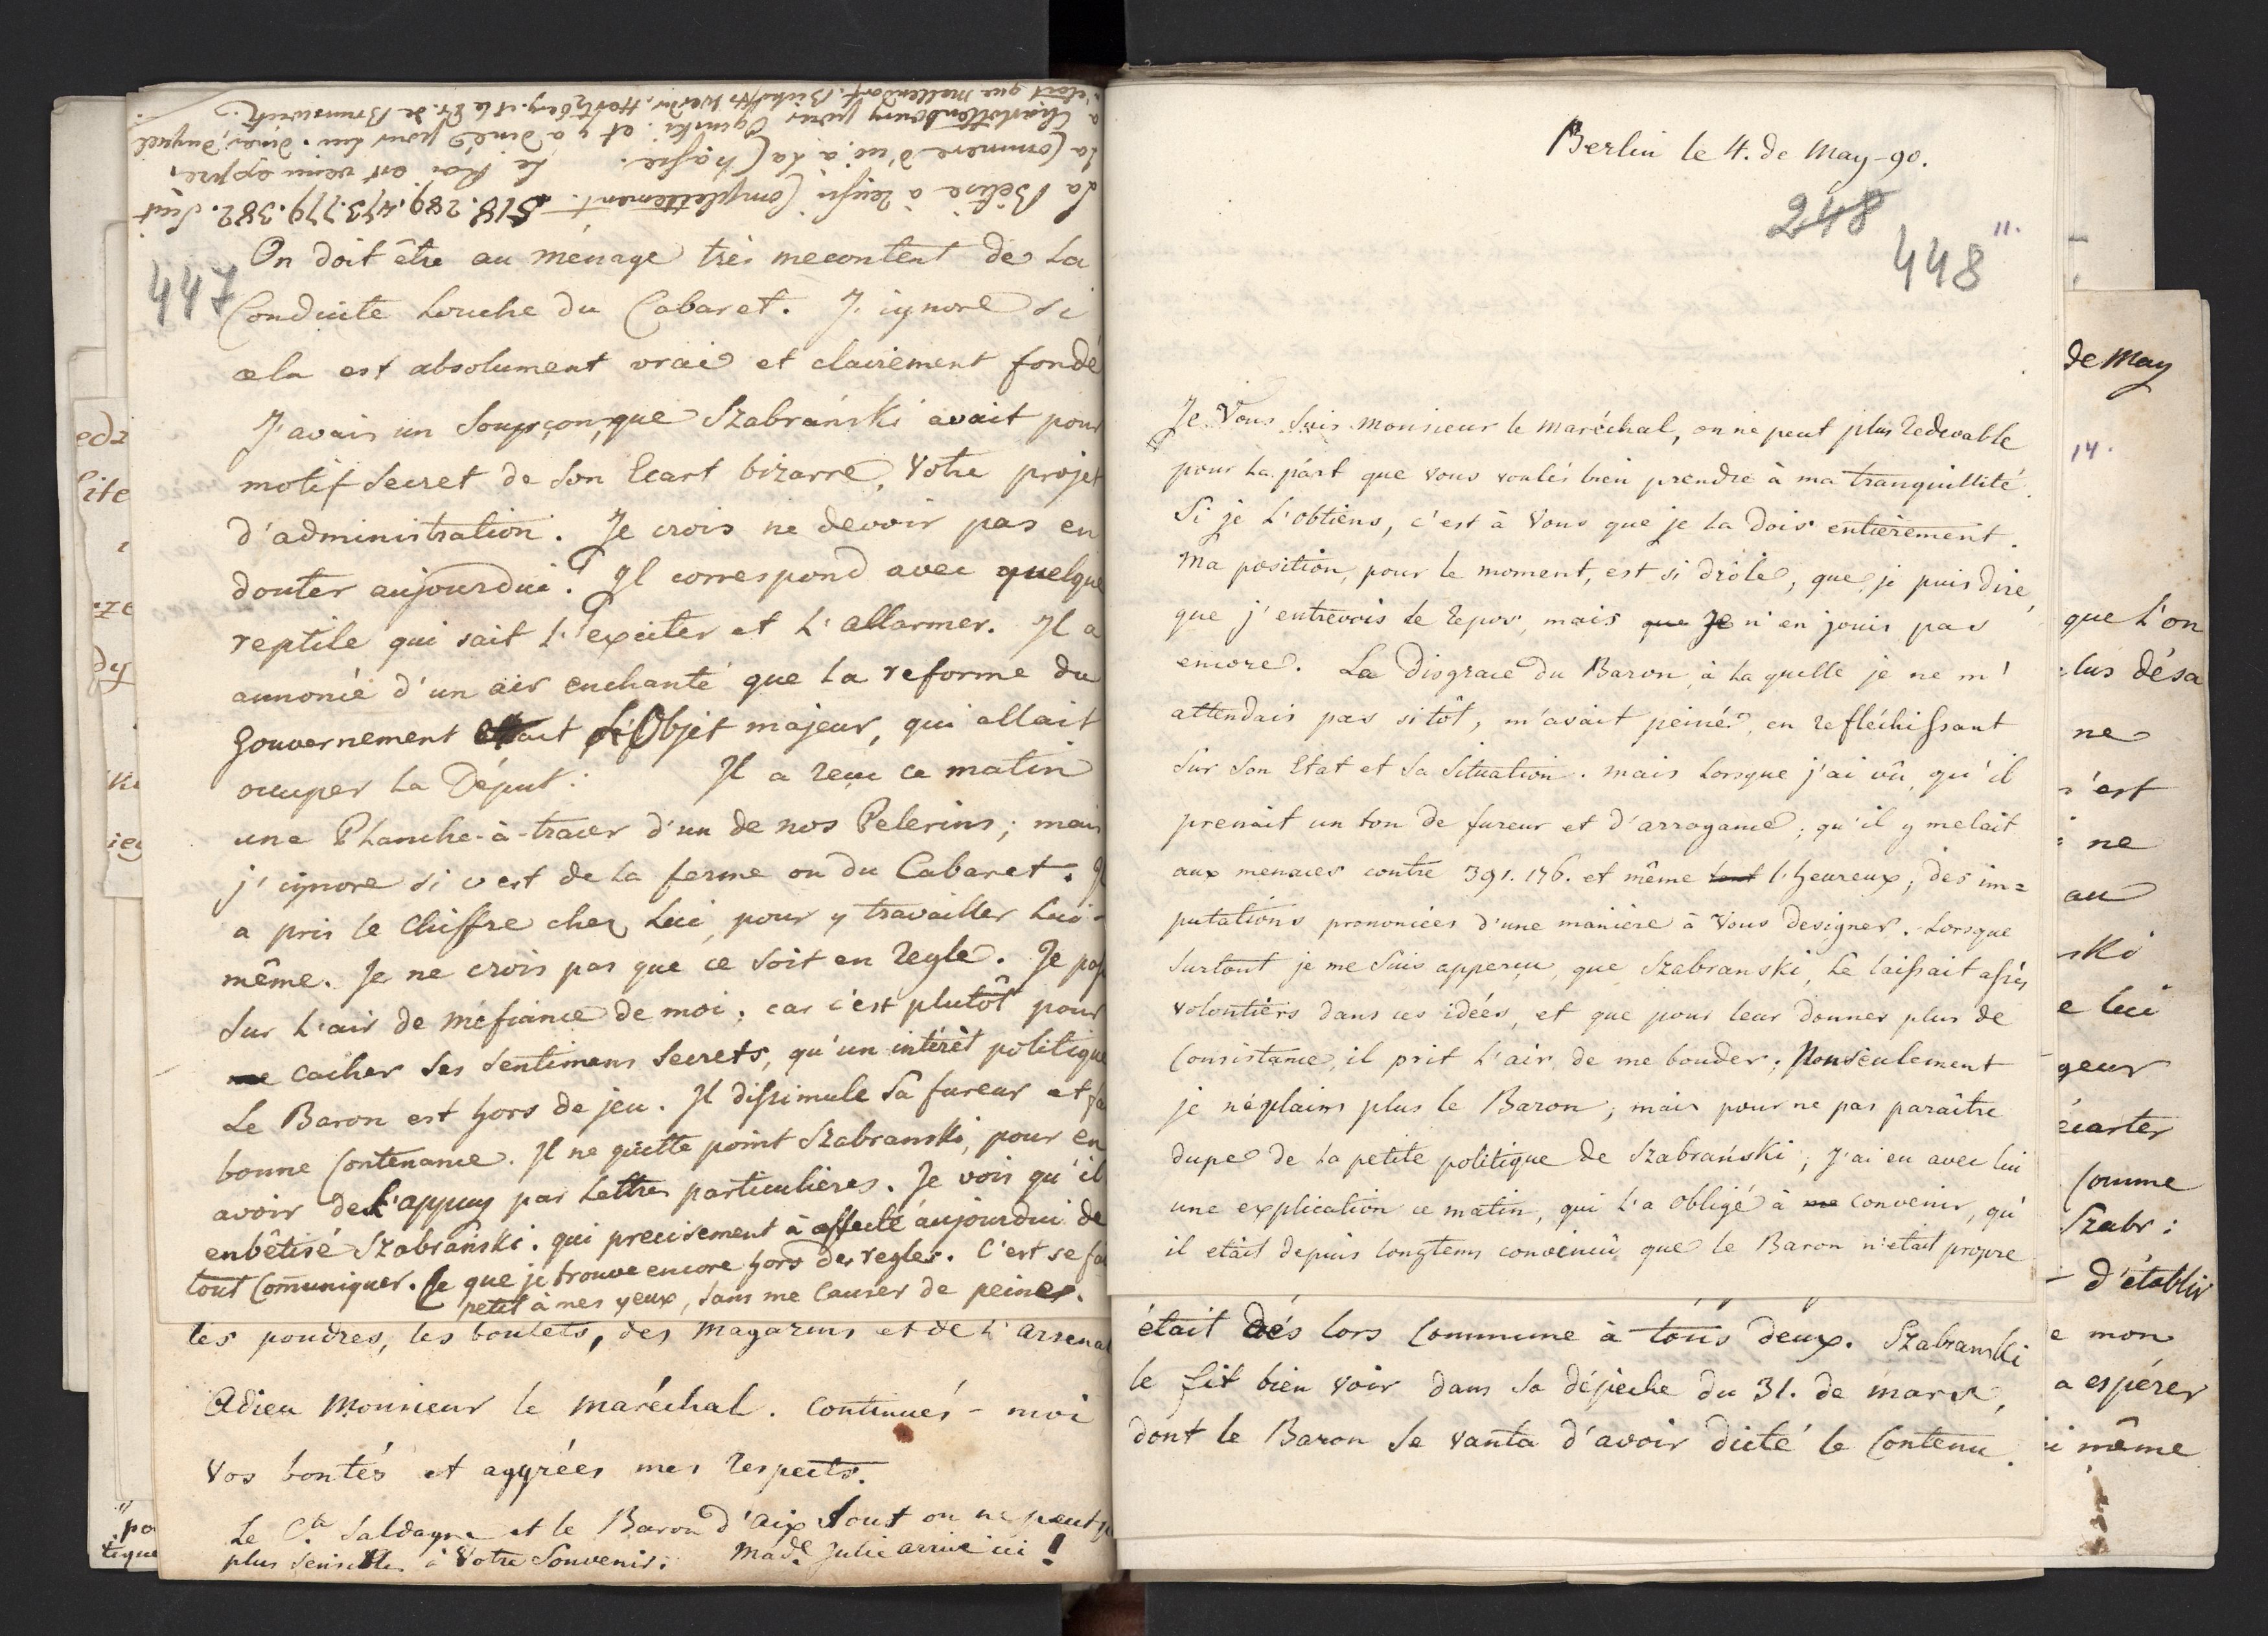 La Bêtise à reussi Complettement. 518.289.473.779.382. Suit
la Commere d'ué à la Chasse. Le Roi est venu exprès
a Charlottenbourg pour Oginski. et y a diné pour lui. diner, duquel
n'étoit que Mallendorf. Bishofswerder. Hertzberg. et le Dr. de Brunswick.
447
On doit être au ménage très mecontent de la
Conduite louche du Cabaret. J. ignore si
cela est absolument vrai et clairement fondé
J'avais un Soupçon, que Szabrański avait pour
motif secret de son Ecart bizarre, Votre projet
d'administration. Je crois ne devoir pas en
douter aujourdui. Il correspond avec quelque
reptile qui sait l'exciter et l'allarmer. Il a
annoncé d'un air enchanté que la reforme du
gouvernement était l'Objet majeur, qui allait
occuper la Déput: Il a reçu ce matin
une Planche-à-tracer d'un de nos Pelerins; mais
j'ignore si c'est de la ferme ou du Cabaret. Il
a pris le Chiffre chez lui, pour y travailler lui-
même. Je ne crois pas que ce soit en regle. Je passe
sur l'air de méfiance de moi; car c'est plutôt pour
me cacher ses sentimens secrets, qu'un intérêt politique
Le Baron est hors de jeu. Il dissimule sa fureur et fa
bonne Contenance. Il ne quitte point Szabranski, pour en
avoir de l'appuy par Lettres particulières. Je vois qu'il
enbêtisé Szabrański. qui precisement à affecté aujourdui de
tout Com̄uniquer. Ce que je trouve encore hors des regles. C'est se fai
petit à mes yeux, sans me Causer de peines.
les poudres, les boulets, des Magazins et de l'arsenal
Adieu Monsieur le maréchal. Continués-moi
Vos bontés et aggrées mes respects.
Le Cte Saldagne et le Baron d'Aix sont on ne peut
plus sensibles à Votre Souvenir. Made Julie arrive ici!
Berlin le 4. de May-90.
248
11.
448
Je Vous suis Monsieur le maréchal, on ne peut plus redevable
pour la part que vous voulés bien prendre à ma tranquillité.
Si je l'obtiens, c'est à Vous que je la dois entièrement.
Ma position, pour le moment, est si drôle, que je puis dire,
que j'entrevois le repos, mais que je n'en jouis pas
encore. La disgrace du Baron, à la quelle je ne m'
attendais pas sitôt, m'avait peiné, en refléchissant
sur son Etat et sa situation. mais lorsque j'ai vû, qu'il
prenait un ton de fureur et d'arrogance; qu'il y melait
aux menaces contre 391. 176. et même tout l'heureux, des im=
putations prononcées d'une manière à Vous designer. Lorsque
surtout je me suis apperçu, que Szabranski, le laissait assés
volontiers dans ces idées, et que pour leur donner plus de
Consistance, il prit l'air de me bouder; Nonseulement
je né plains plus le Baron; mais pour ne pas paraître
dupe de la petite politique de Szabrański; J'ai eu avec lui
une explication ce matin, qui l'a obligé à me convenir, qu'
il etait depuis longtems convaincu que le Baron n'etait propre
était dés lors Commune à tous deux. Szabranski
le fit bien voir dans sa dépeche du 31. de mars,
dont le Baron se vanta d'avoir dicté le Contenu.
de May
14.
que l'on
lus désa
ne
'est
ne
au
ski
e lui
geur
écarter
Comme
Szabr:
d'établir
e mon
a espérer
i même